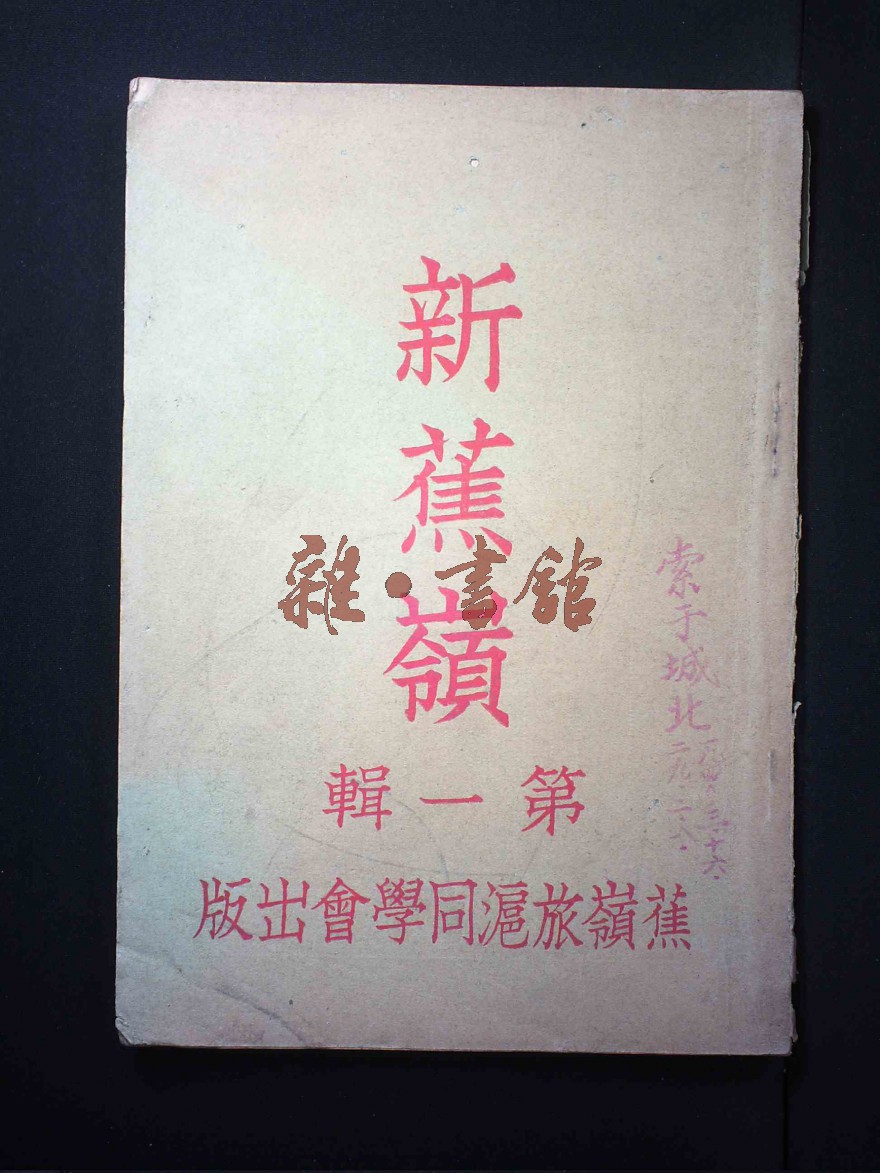 新蕉嶺
第一輯
蕉嶺旅滬同學會出版
索于城北
雜·書館